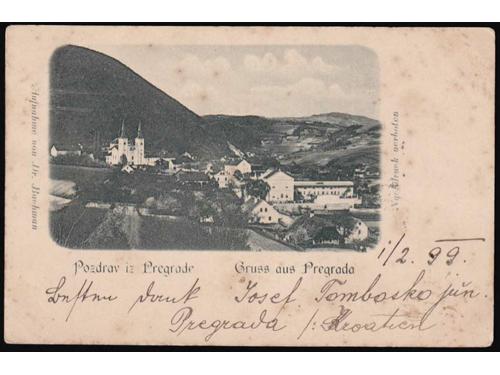 Aufnahme von Dr. Bachman
Nachdruck verboten
Pozdrav iz Pregrade Gruss aus Pregrada
1/2. 99.
Besten dank Josef Tombasko jun.
Pregrada /: Kroatien